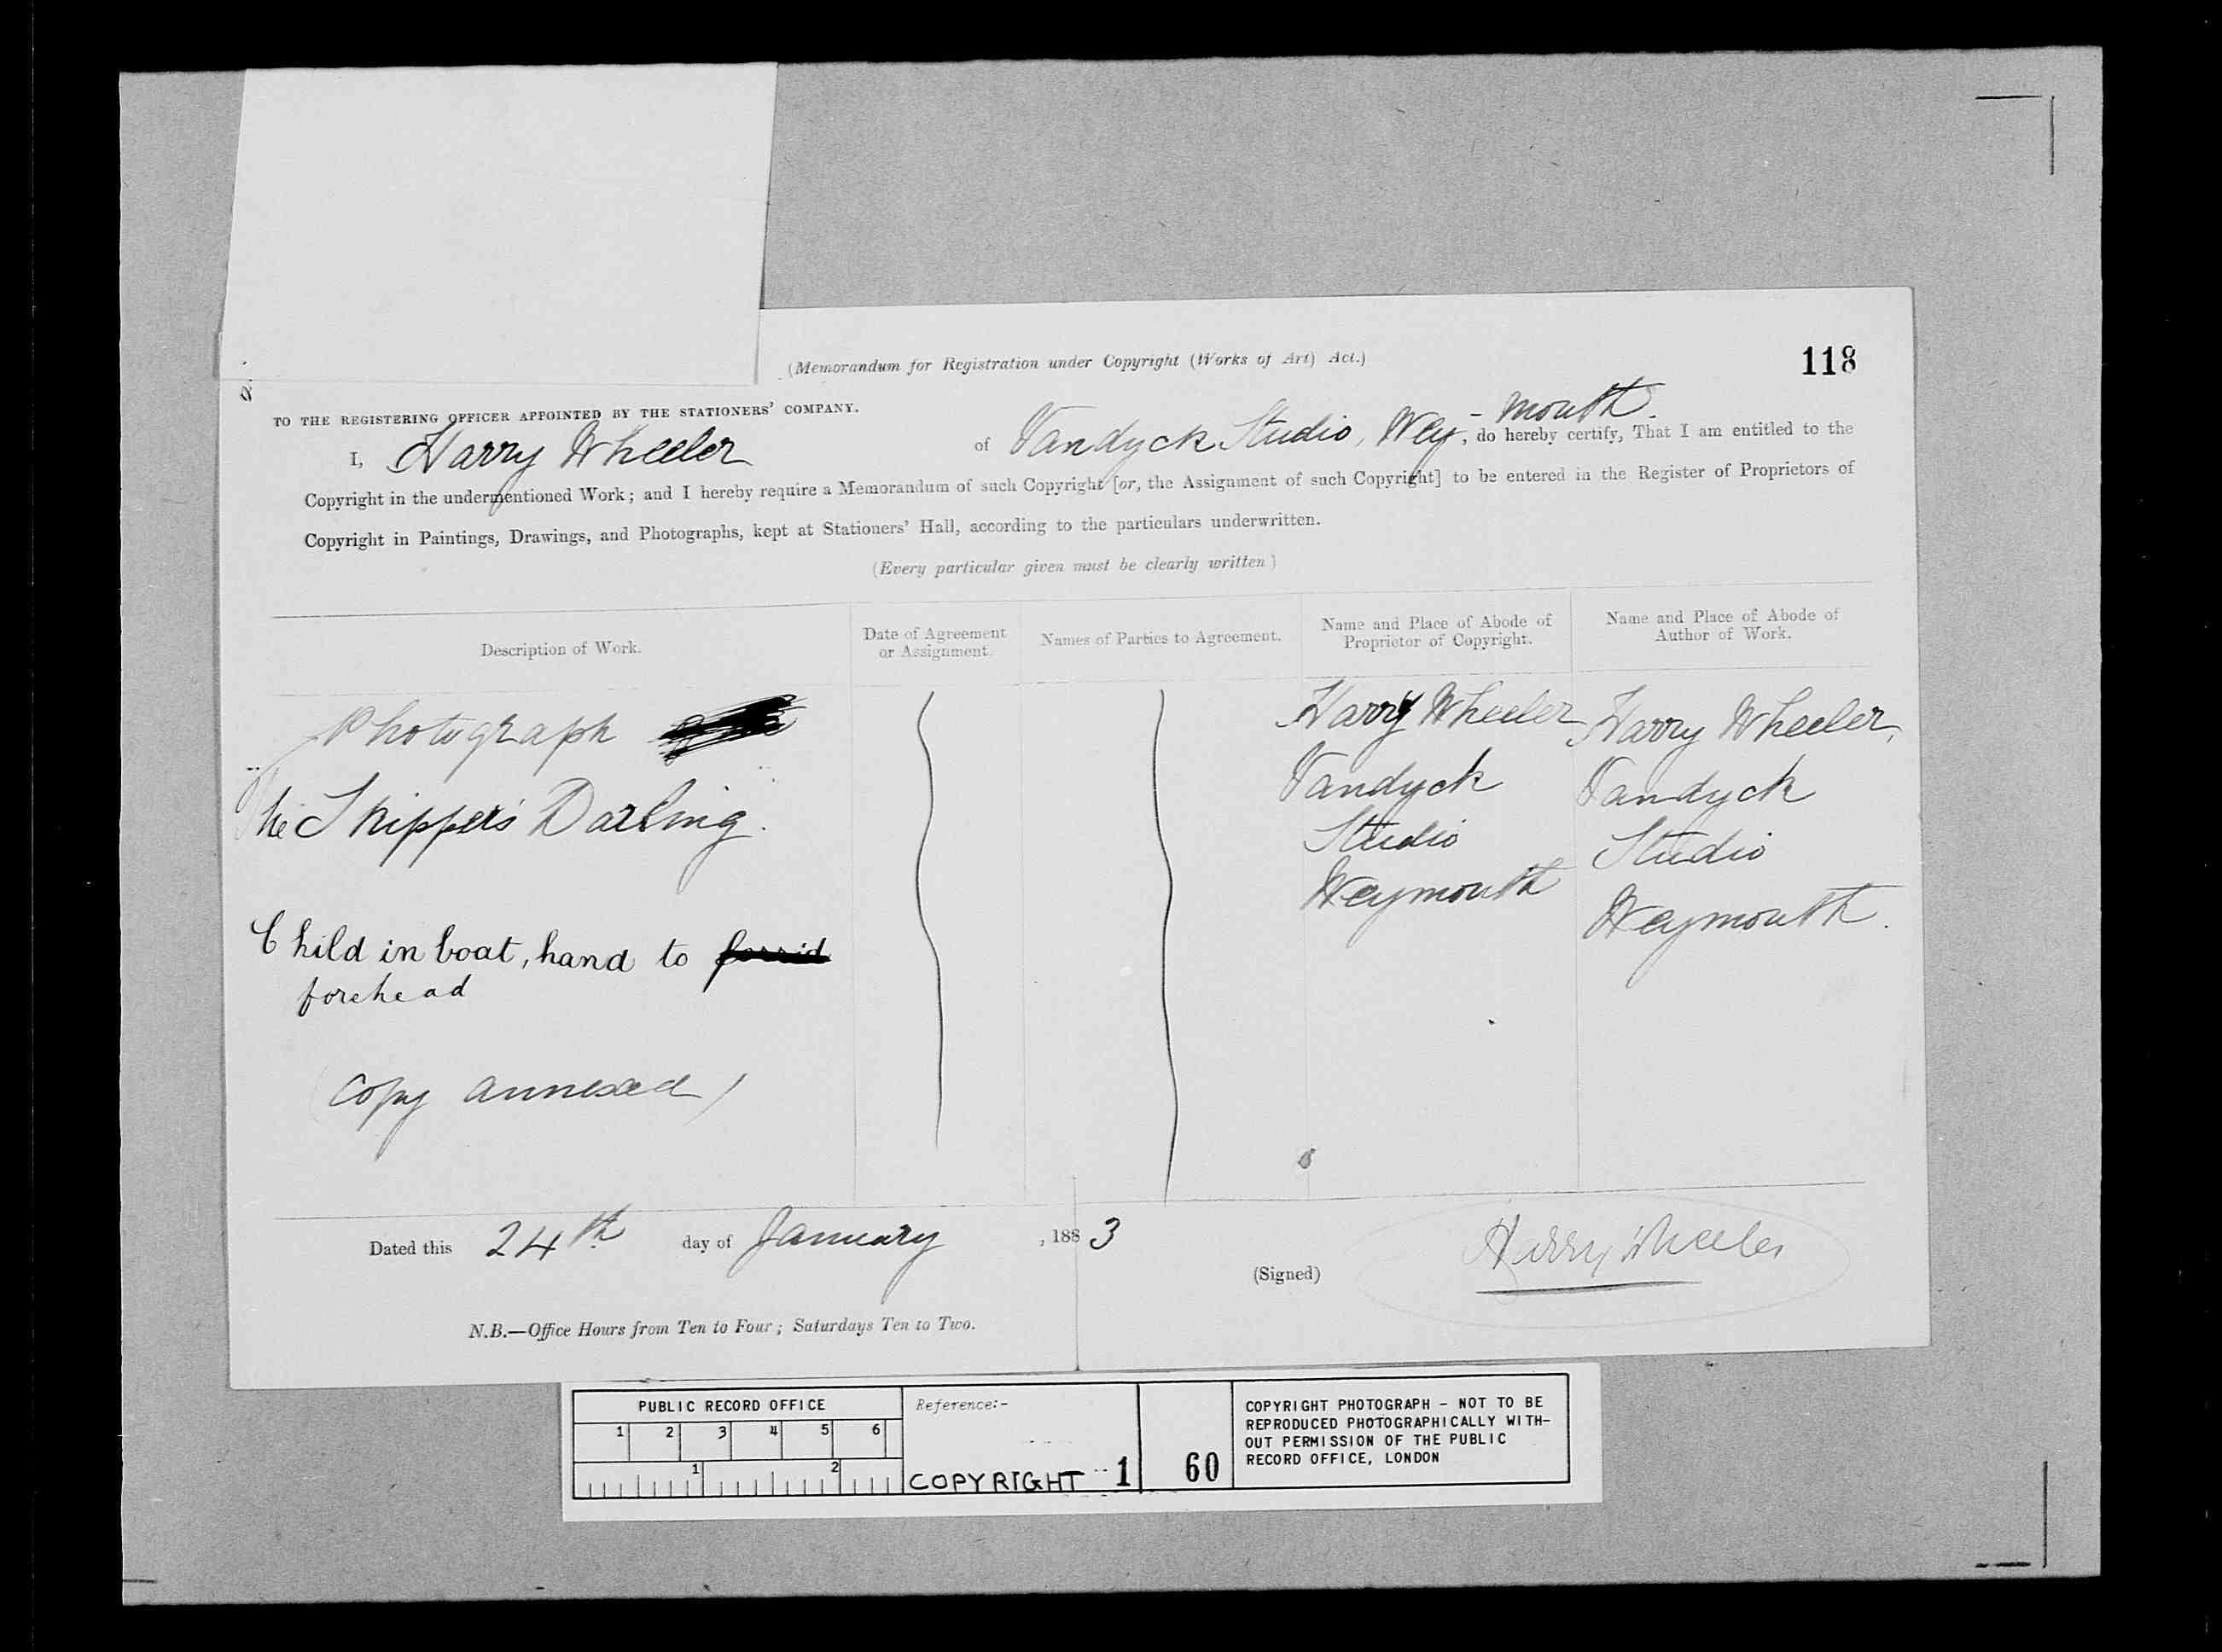 (Memorandum for Registration under Copyright (Works of Art) Act.)
118
TO THE REGISTERING OFFICER APPOINTED BY THE STATIONERS' COMPANY.
I, Harry Wheeler of Vandyck Studio, Wey-mouth., do hereby certify, That I am entitled to the
Copyright in the undermentioned Work; and I hereby require a Memorandum of such Copyright [or, the Assignment of such Copyright] to be entered in the Register of Proprietors of
Copyright in Paintings, Drawings, and Photographs, kept at Stationers' Hall, according to the particulars underwritten.
(Every particular given must be clearly written)
Description of Work.
Date of Agreement
or Assignment.
Names of Parties to Agreement.
Name and Place of Abode of
Proprietor of Copyright.
Name and Place of Abode of
Author of Work.
Photograph
"The Skipper's Darling".
Child in boat, hand to forrid
forehead
(Copy annexed)
Harry Wheeler
Vandyck
Studio
Weymouth
Harry Wheeler,
Vandyck
Studio
Weymouth.
Dated this 24th day of January, 1883
(Signed) Harry Wheeler
N.B.—Office Hours from Ten to Four; Saturdays Ten to Two.
PUBLIC RECORD OFFICE
1 2 3 4 5 6
1 2
Reference:-
COPYRIGHT 1
60
COPYRIGHT PHOTOGRAPH - NOT TO BE
REPRODUCED PHOTOGRAPHICALLY WITH-
OUT PERMISSION OF THE PUBLIC
RECORD OFFICE, LONDON